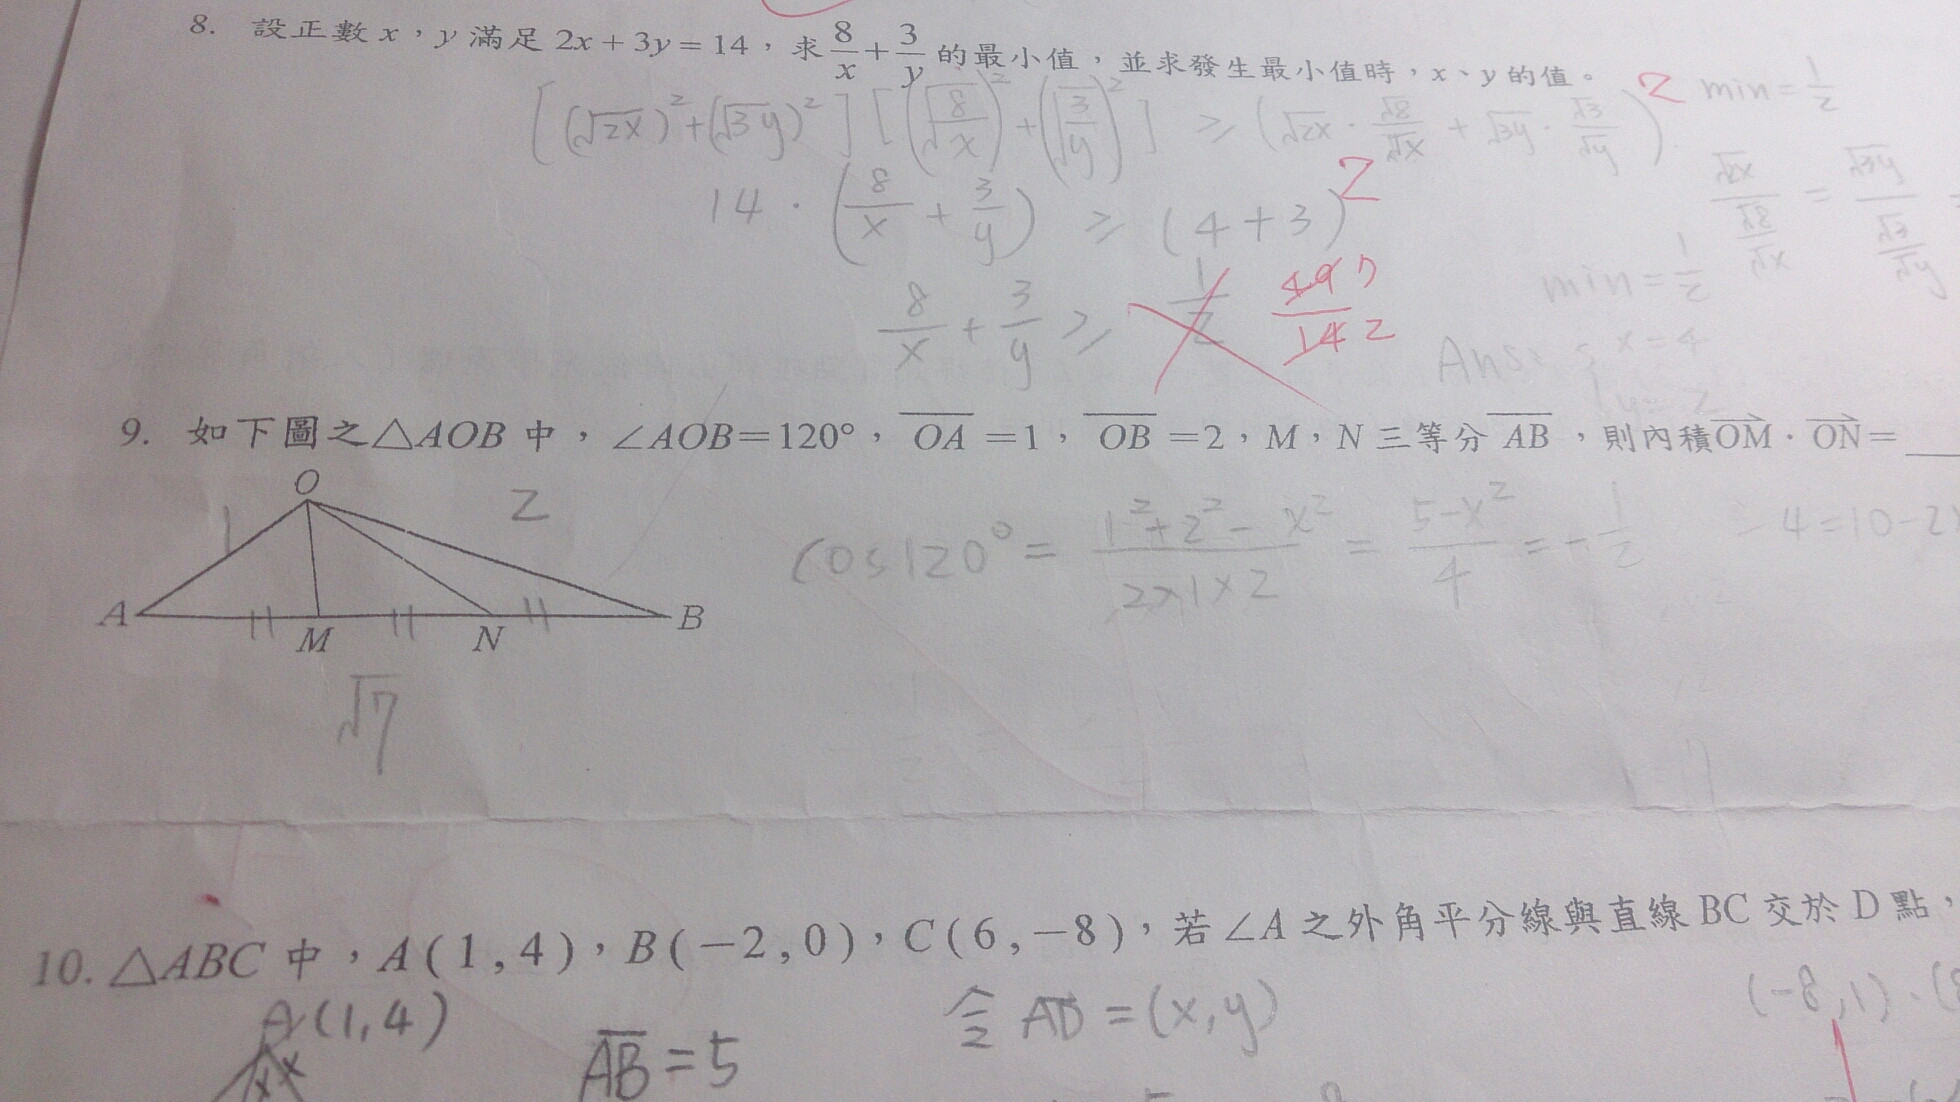 8. 設正數 x，y 滿足 2x+3y=14，求 8/x + 3/y 的最小值，並求發生最小值時，x、y 的值。
[(√2x)²+(√3y)²][(√8/√x)²+(√3/√y)²] ≥ (√2x · √8/√x + √3y · √3/√y)² min=1/2
14 · (8/x + 3/y) ≥ (4+3)²
√2x / (√8/√x) = √3y / (√3/√y) =
8/x + 3/y ≥ 1/2 49 7 / 14 2
min=1/2
Ans: x=4
y=2
9. 如下圖之△AOB 中，∠AOB=120°，OA =1，OB =2，M，N 三等分 AB，則內積OM · ON=
O
1
2
A
M
N
B
√7
cos120° = 1²+2²-x² / 2×1×2 = 5-x² / 4 = -1/2
-4=10-2
10. △ABC 中，A(1,4)，B(-2,0)，C(6,-8)，若∠A 之外角平分線與直線BC 交於 D 點，
A(1,4)
x x
AB=5
令 AD=(x,y)
(-8,1)·(8